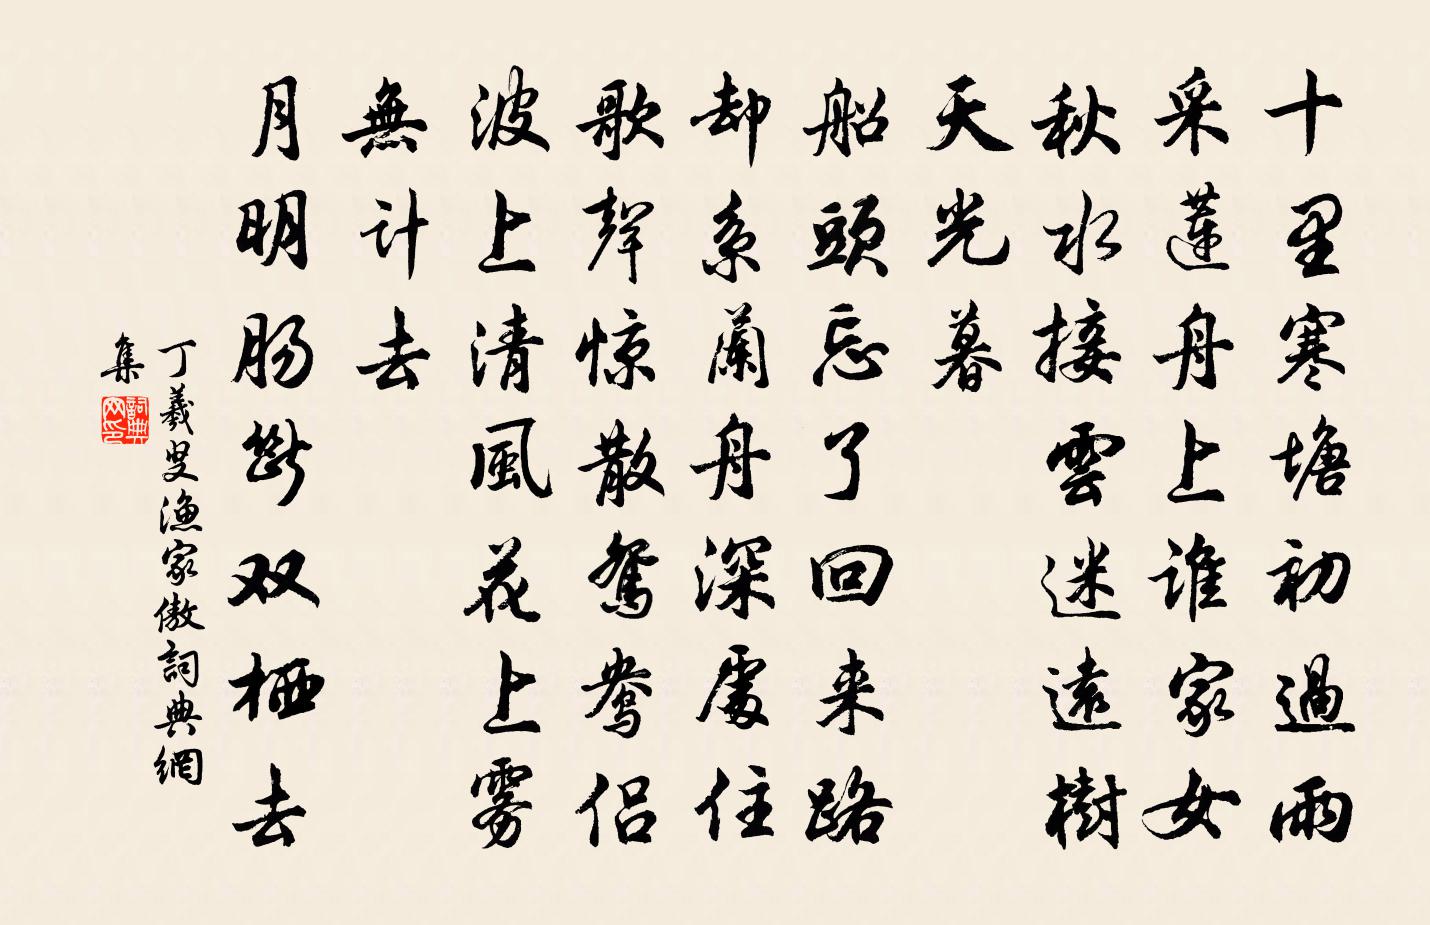 十里寒塘初過雨
采蓮舟上誰家女
秋水接雲迷遠樹
天光暮
船頭忘了回来路
却系蘭舟深處住
歌聲惊散鴛鴦侣
波上清風花上雾
無計去
月明肠斷双栖去
丁羲叟漁家傲詞典網
集
詞典
网印